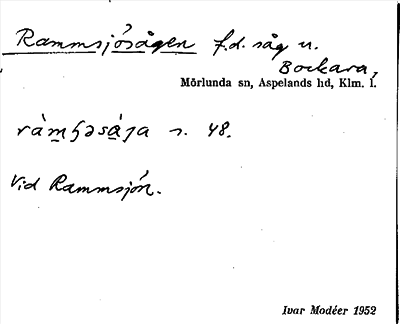 Rammsjösågen f.d. såg u.
Bockara,
Mörlunda sn, Aspelands hd, Klm. l.
s. 48.
Vid Rammsjön.
Ivar Modéer 1952